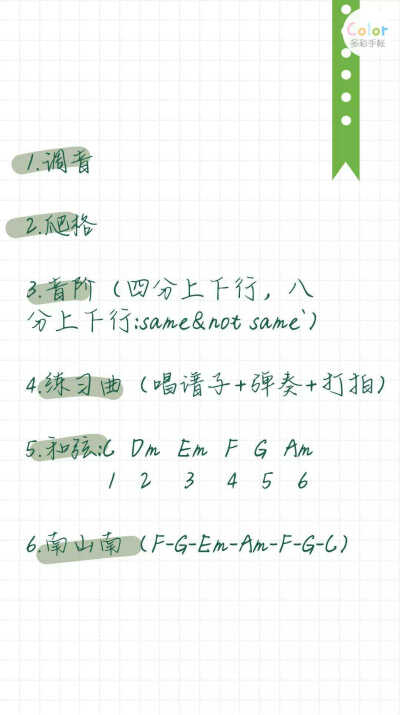 Color
多彩手帐
1.调音
2.爬格
3.音阶（四分上下行，八
分上下行:same&not same`）
4.练习曲（唱谱子+弹奏+打拍）
5.和弦:C Dm Em F G Am
1 2 3 4 5 6
6.南山南（F-G-Em-Am-F-G-C）